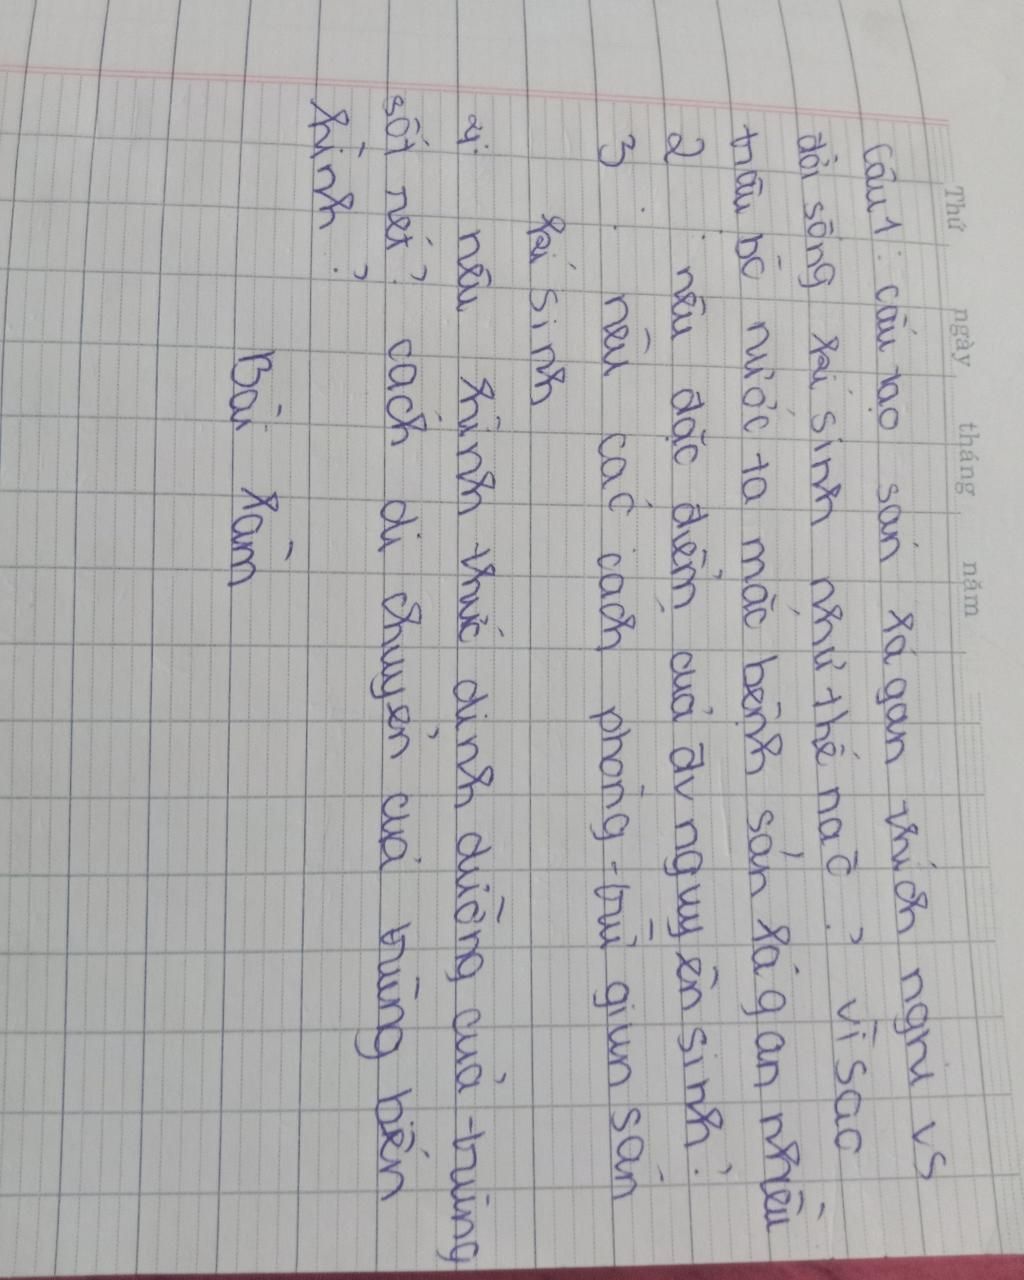 Thứ ngày tháng năm
Câu 1: cấu tạo sán lá gan thích nghi vs
đời sống kí sinh như thế nào? vì sao
trâu bò nước ta mắc bệnh sán lá gan nhiều
2: nêu đặc điểm của đv nguyên sinh?
3: nêu các cách phòng trừ giun sán
kí sinh
4: nêu hình thức dinh dưỡng của trùng
sốt rét? cách di chuyển của trùng biến
hình?
Bài làm